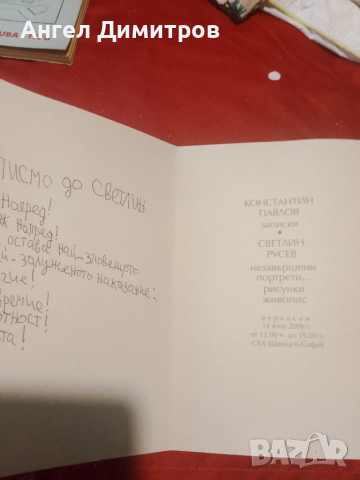 Ангел Димитров
UBA
ПИСМО ДО СВЕТЛИН
НАПРЕД!
НАПРЕД!
ОСТАВА НАЙ-ЗЛОВЕЩОТО
Й-ЗАСЛУЖЕНОТО НАКАЗАНИЕ:
ЧИЕ!
ВРЕМИЕ!
ОТНОСТ!
ТА!
КОНСТАНТИН
ПАВЛОВ
записки
•
СВЕТЛИН
РУСЕВ
незавършени
портрети...
рисунки
живопис
вернисаж
14 юни 2006 г.
от 12.00 ч. до 19.00 ч.
СБХ Шипка 6, София
BAZAR